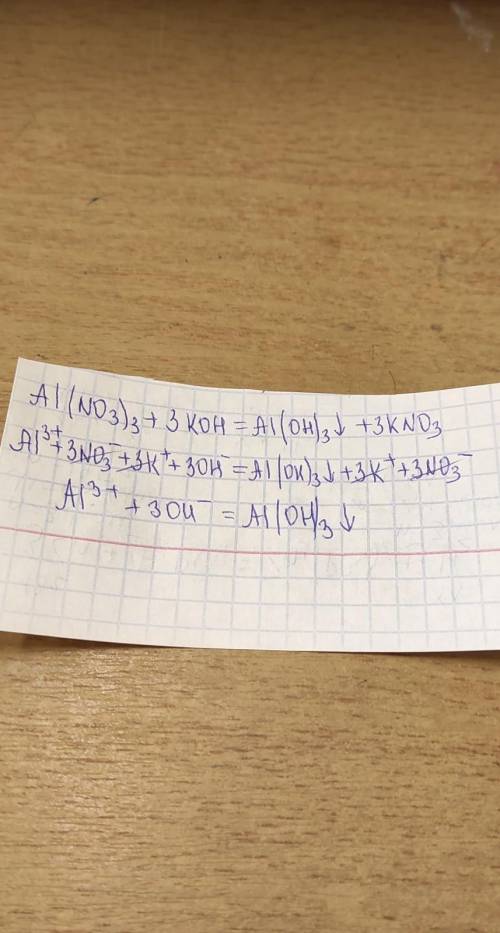 Al(NO₃)₃ + 3KOH = Al(OH)₃↓ + 3KNO₃
Al³⁺ + 3NO₃⁻ + 3K⁺ + 3OH⁻ = Al(OH)₃↓ + 3K⁺ + 3NO₃⁻
Al³⁺ + 3OH⁻ = Al(OH)₃↓